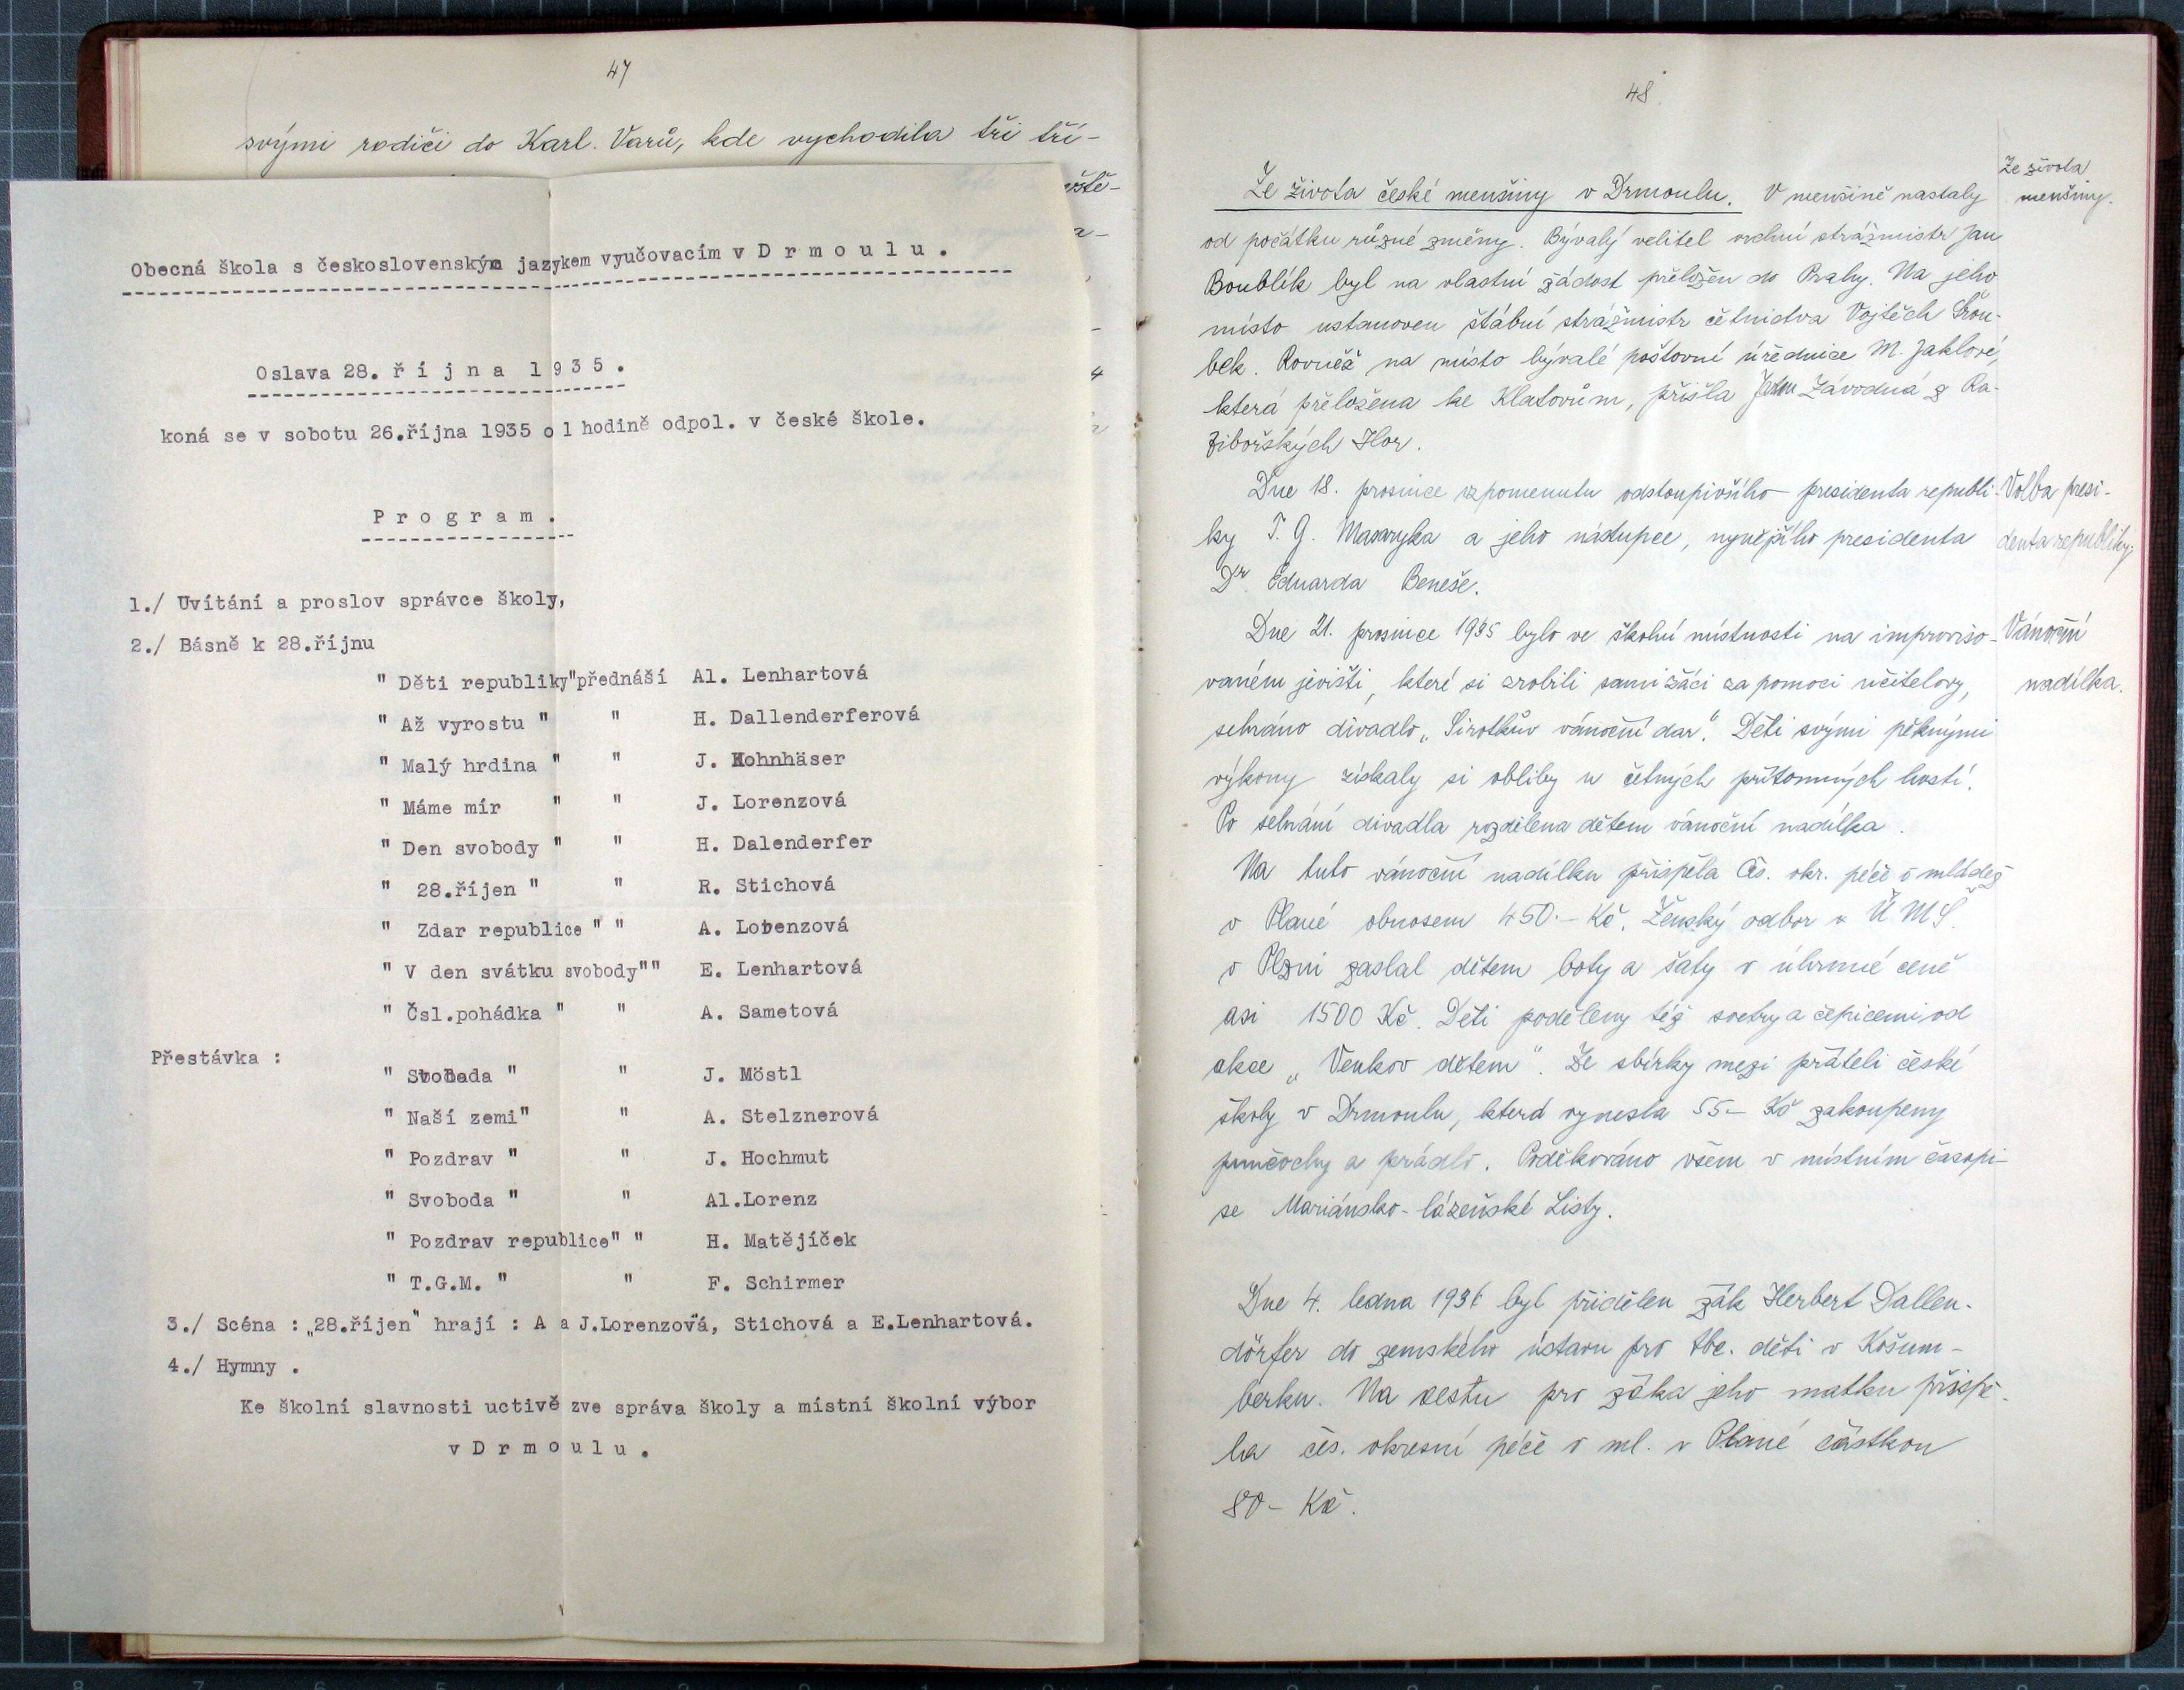 47
svými rodiči do Karl. Varů, kde vychodila tři tří-
Obecná škola s československým jazykem vyučovacím v D r m o u l u .
Oslava 28. ř í j n a 1 9 3 5 .
koná se v sobotu 26.října 1935 o 1 hodině odpol. v české škole.
P r o g r a m .
1./ Uvítání a proslov správce školy,
2./ Básně k 28.říjnu
" Děti republiky"přednáší Al. Lenhartová
" Až vyrostu " " H. Dallenderferová
" Malý hrdina " " J. Kohnhäser
" Máme mír " " J. Lorenzová
" Den svobody " " H. Dalenderfer
" 28.říjen " " R. Stichová
" Zdar republice " " A. Lorenzová
" V den svátku svobody"" E. Lenhartová
" Čsl.pohádka " " A. Sametová
Přestávka :
" Svoboda " " J. Möstl
" Naší zemi" " A. Stelznerová
" Pozdrav " " J. Hochmut
" Svoboda " " Al.Lorenz
" Pozdrav republice" " H. Matějíček
" T.G.M. " " F. Schirmer
3./ Scéna : „28.říjen" hrají : A a J.Lorenzová, Stichová a E.Lenhartová.
4./ Hymny .
Ke školní slavnosti uctivě zve správa školy a místní školní výbor
v D r m o u l u .
48
Ze života české menšiny v Drmoulu. V menšině nastaly
od počátku různé změny. Bývalý velitel vrchní strážmistr Jan
Boublík byl na vlastní žádost přeložen do Prahy. Na jeho
místo ustanoven štábní strážmistr četnictva Vojtěch Šrou-
bek. Rovněž na místo bývalé poštovní úřednice M. Jaklové,
která přeložena ke Klatovům, přišla Závodná z Ra-
tibořských Hor.
Dne 18. prosince vzpomenuto odstoupivšího presidenta republi-
ky T. G. Masaryka a jeho nástupce, nynějšího presidenta
Dr. Eduarda Beneše.
Dne 21. prosince 1935 bylo ve školní místnosti na improviso-
vaném jevišti, které si zrobili sami žáci za pomoci učitelovy,
sehráno divadlo „Sirotkův vánoční dar“. Děti svými pěknými
výkony získaly si obliby u četných přítomných hostí.
Po sehrání divadla rozdělena dětem vánoční nadílka.
Na tuto vánoční nadílku přispěla Čs. okr. péče o mládež
v Plané obnosem 450.- Kč. Ženský odbor ÚMŠ.
v Plzni zaslal dětem boty a šaty v úhrnné ceně
asi 1500 Kč. Děti poděleny též svetry a čepicemi od
akce „Venkov dětem“. Ze sbírky mezi přáteli české
školy v Drmoulu, která vynesla 55- Kč zakoupeny
punčochy a prádlo. Poděkováno všem v místním časopi-
se Mariánsko-lázeňské Listy.
Dne 4. ledna 1936 byl přidělen žák Herbert Dallen-
dörfer do zemského ústavu pro tbc. děti v Košum-
berku. Na cestu pro žáka jeho matku přispě-
la čs. okresní péče o ml. v Plané částkou
80- Kč.
Ze života
menšiny.
Volba presi-
denta republiky.
Vánoční
nadílka.